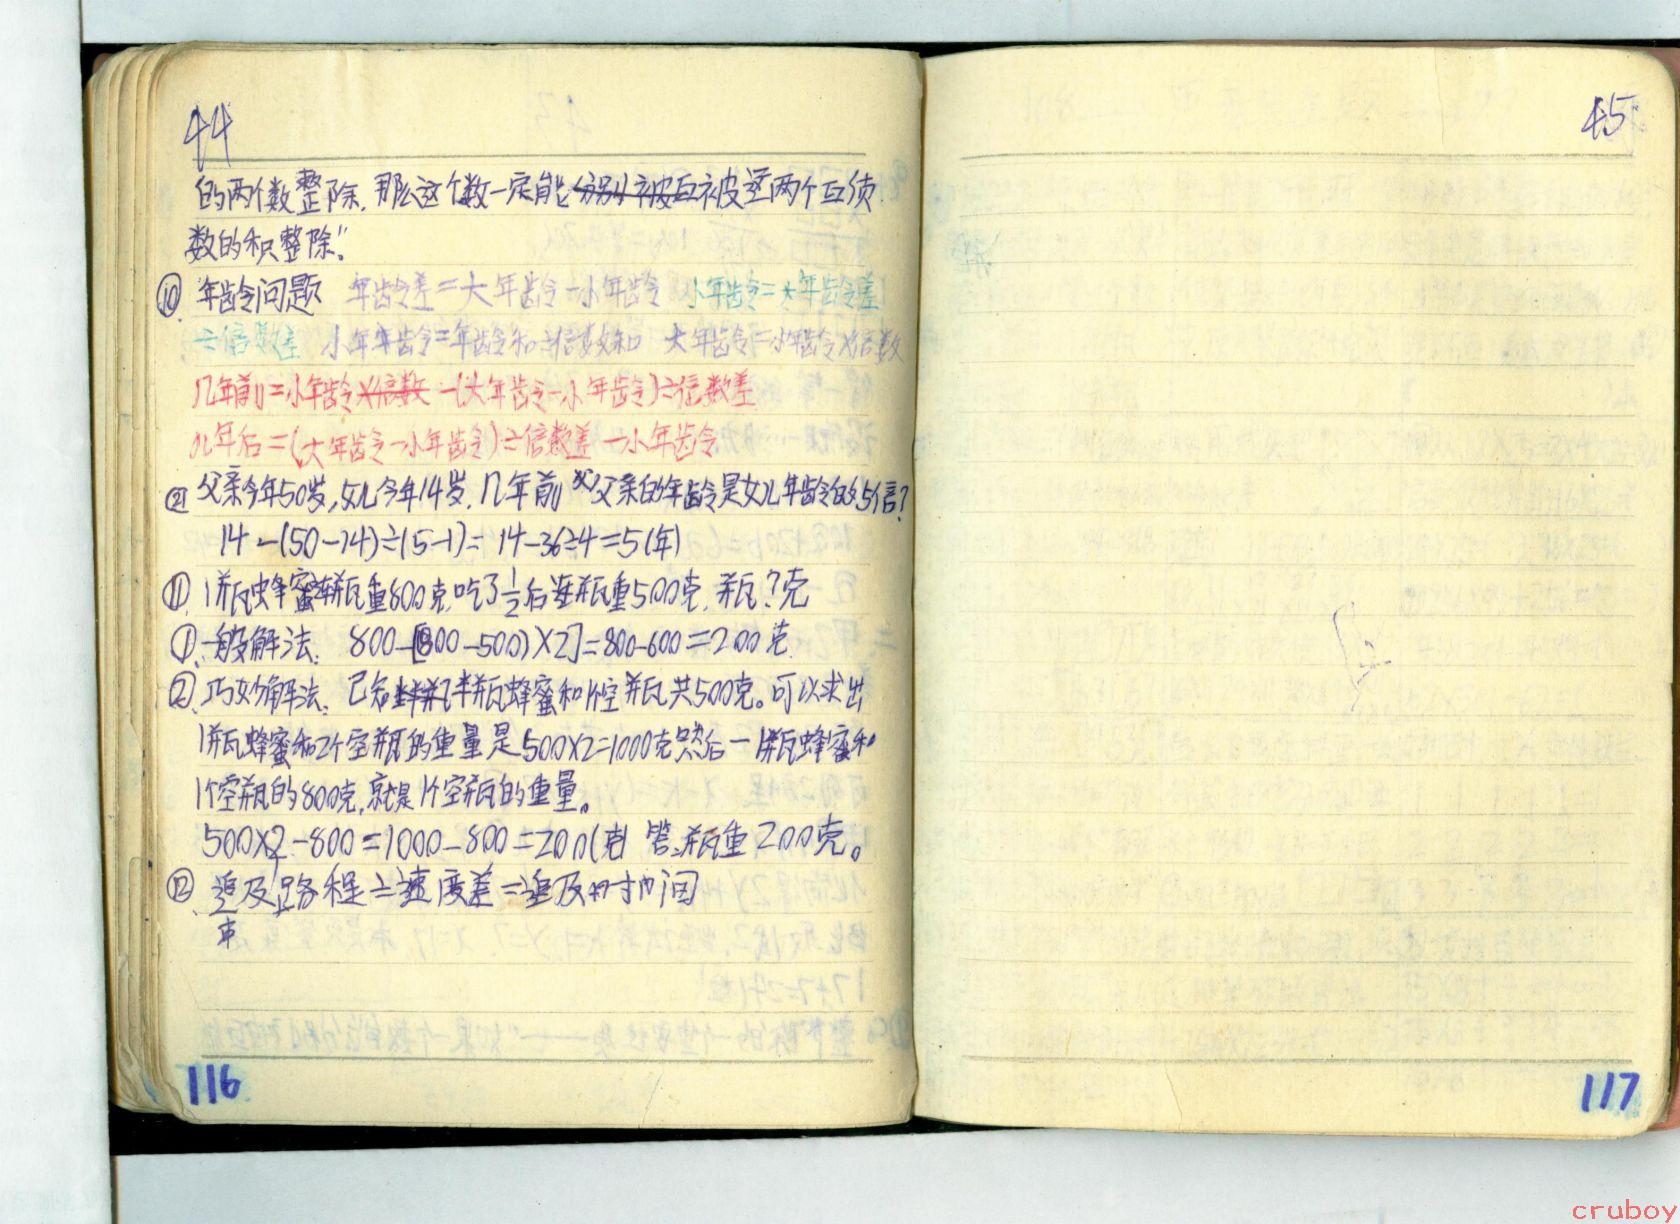 44
的两个数整除,那么这个数一定能分别被互被这两个互质
数的积整除."
⑩ 年龄问题 年龄差=大年龄-小年龄 小年龄=大年龄差
÷倍数差 小年年龄=年龄和÷倍数和 大年龄=小年龄×倍数
几年前=小年龄×倍数-(大年龄-小年龄)÷倍数差
几年后=(大年龄-小年龄)÷倍数差-小年龄
父亲今年50岁,女儿今年14岁,几年前父亲的年龄是女儿年龄的5倍?
14-(50-14)÷(5-1)=14-36÷4=5(年)
⑪ 1瓶蜂蜜瓶重800克,吃了1/2后连瓶重500克,瓶?克
①、一般解法: 800-[(800-500)×2]=800-600=200克.
②、巧妙解法: 已知半瓶蜂蜜和1个空瓶共500克。可以求出
1瓶蜂蜜和2个空瓶的重量是500×2=1000克然后-1瓶蜂蜜和
1个空瓶的800克,就是1个空瓶的重量。
500×2-800=1000-800=200(克) 答:瓶重200克。
⑫ 追及路程÷速度差=追及时间
45
116
117
cruboy